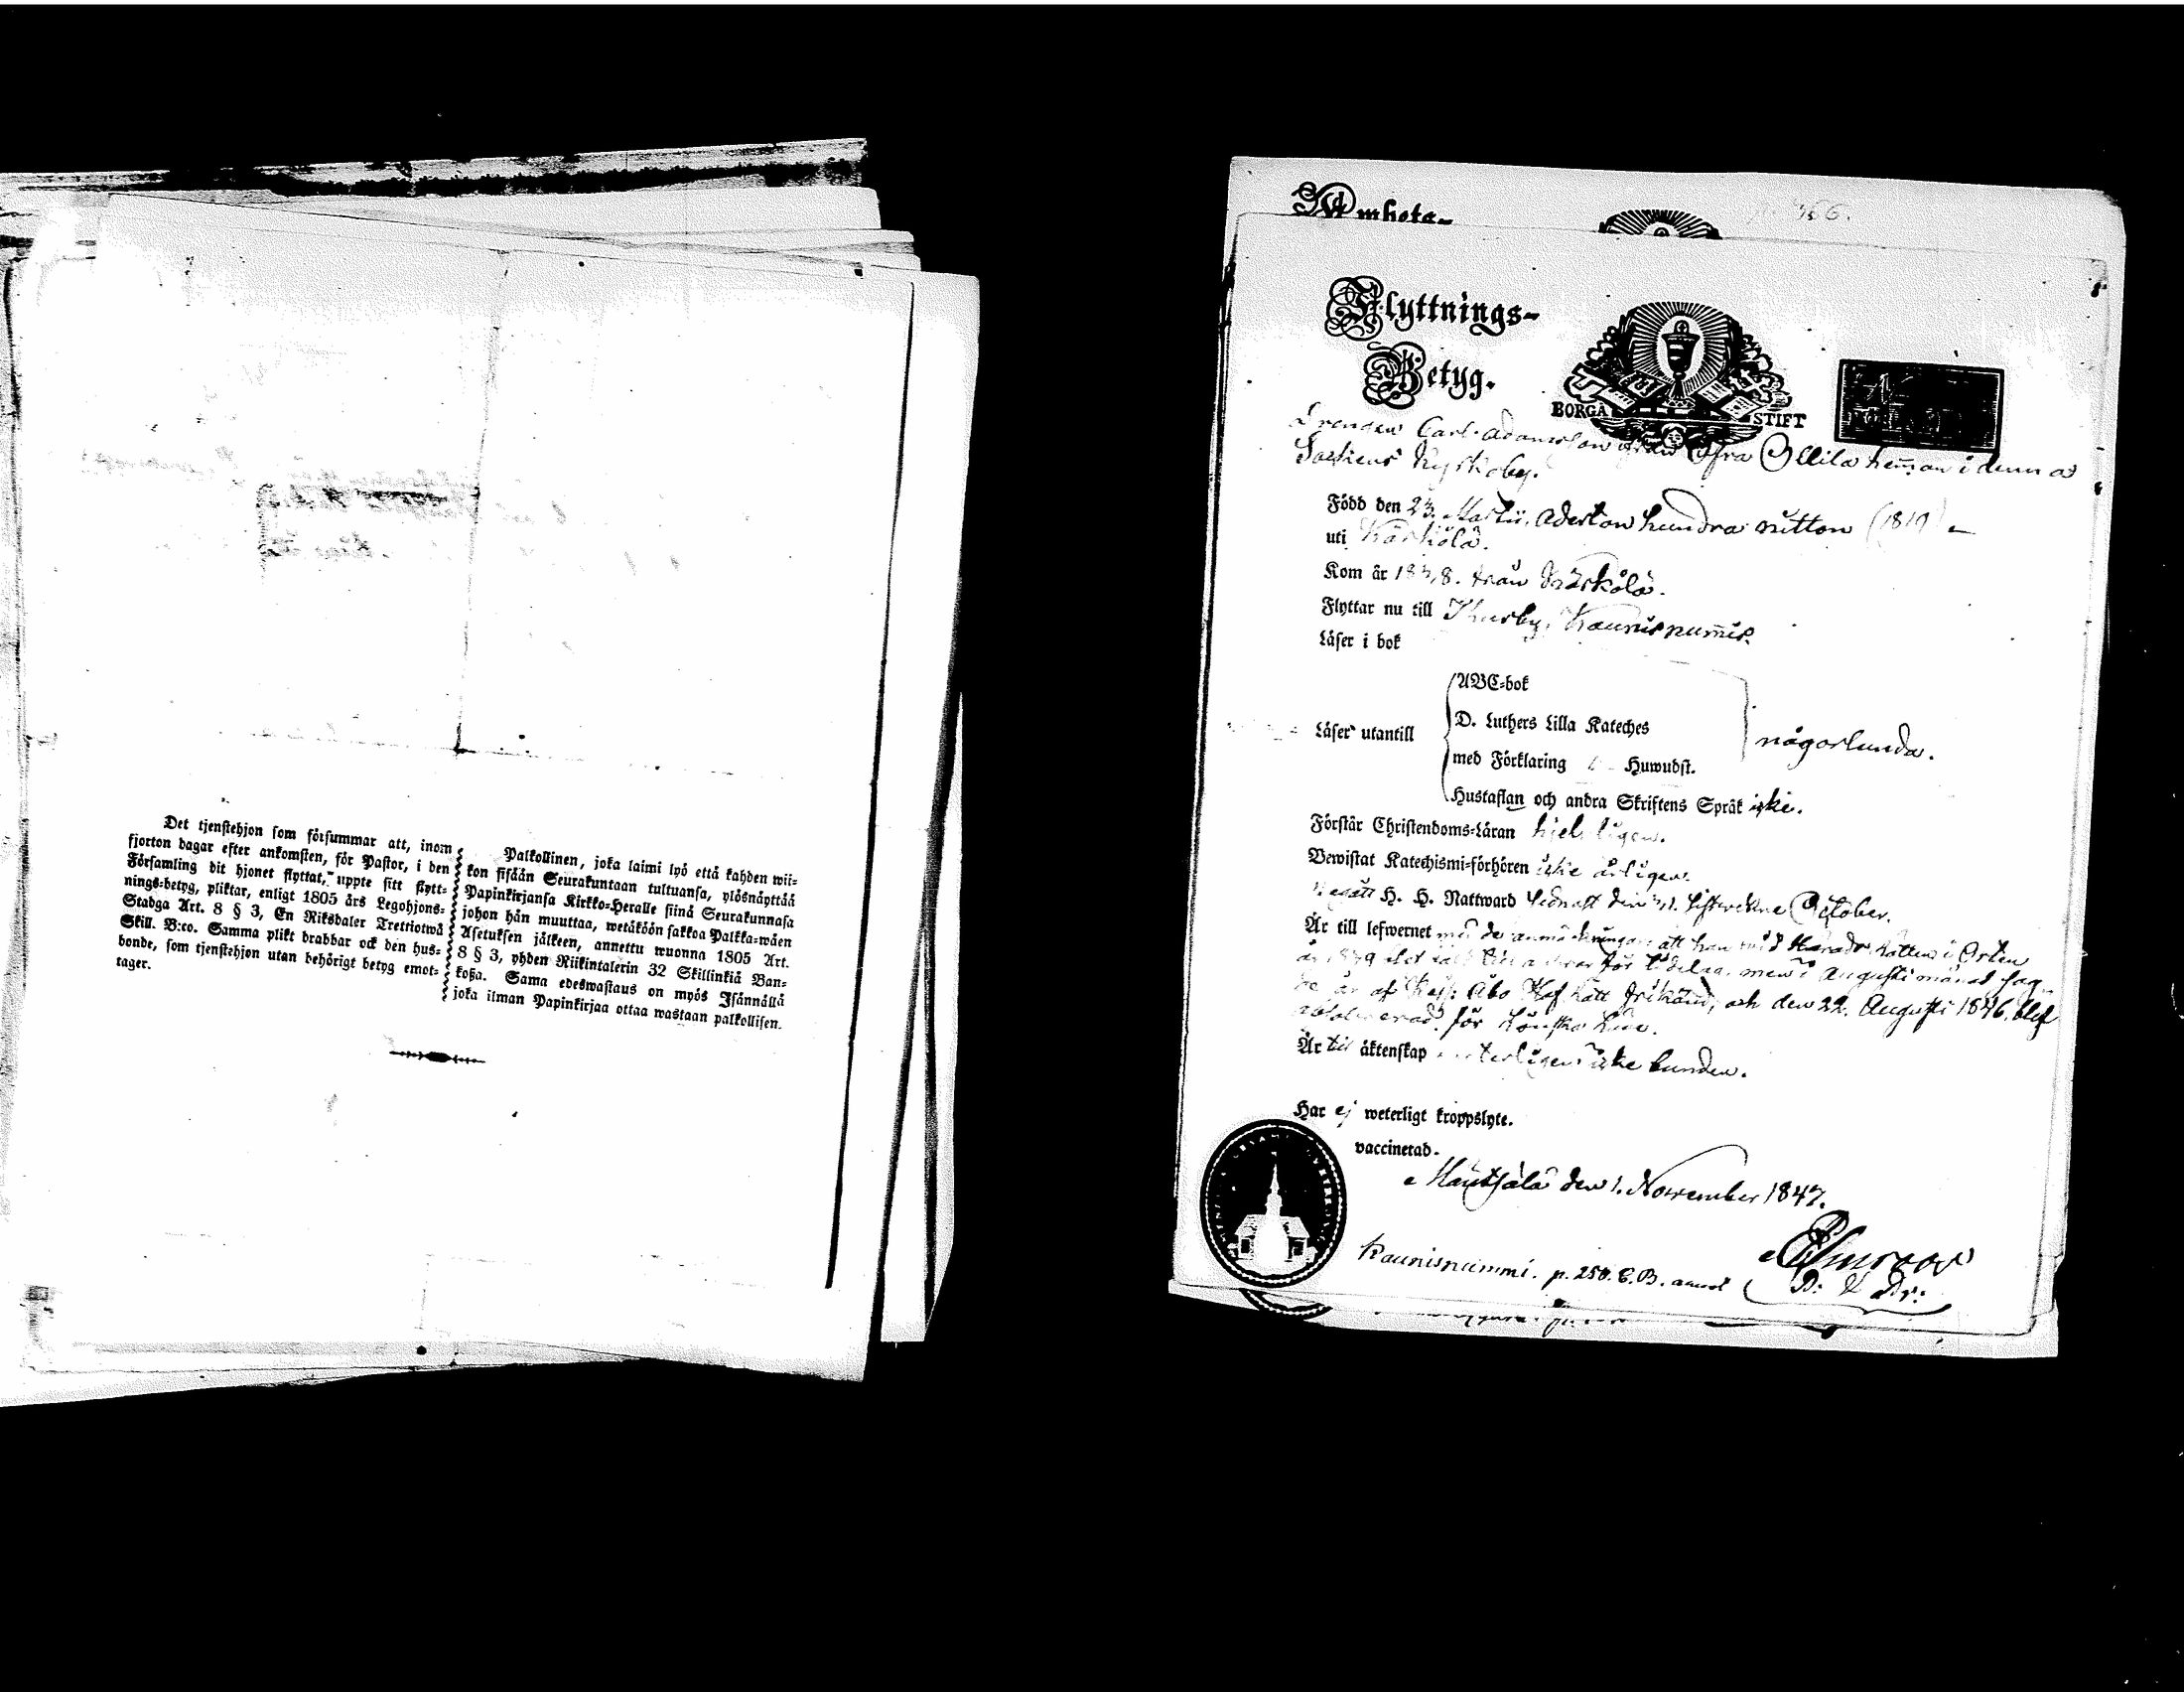 Det tjenstehjon som försummar att, inom
fjorton dagar efter ankomsten, för Pastor, i den
Församling dit hjonet flyttat, uppte sitt flytt-
nings-betyg, pliktar, enligt 1805 års Legohjons-
Stadga Art. 8 § 3, En Riksdaler Trettiotwå
Skill. B:co. Samma plikt drabbar ock den hus-
bonde, som tjenstehjon utan behörigt betyg emot-
tager.
Palkollinen, joka laimi lyö että kahden wii-
kon sisään Seurakuntaan tultuansa, ylösnäyttää
Papinkirjansa Kirkko-Heralle siinä Seurakunnasa
johon hän muuttaa, wetäköön sakkoa Palkka-wäen
Asetuksen jälkeen, annettu wuonna 1805 Art.
8 § 3, yhden Riikintalerin 32 Skillinkiä Ban-
kosa. Sama edeswastaus on myös Isännällä
joka ilman Papinkirjaa ottaa wastaan palkollisen.
Flyttnings-
Betyg.
BORGÅ STIFT
Drengen Carl Adamsson ifrån Ofra Ollila heman i denna
Sockens Kyrkoby.
Född den 23. Martii, Aderton hundra nitton (1819)
uti Kärkölä.
Kom år 1838. från Kärkölä.
Flyttar nu till Thusby, Kaunisnummis.
Läser i bok
ABC-bok
D. Luthers Lilla Kateches
Läser utantill
någorlunda.
med Förklaring Huwudst.
Hustaflan och andra Skriftens Språk icke.
Förstår Christendoms-Läran hjelpligen.
Bewistat Katechismi-förhören icke årligen.
Begått H. H. Nattward sednast den 31. sistwekne October.
Är till lefwernet med de anmärkningar att han wid Härads Rätten i Orten
år 1839 för tidelag, men i Augusti månad
år af Åbo Hof Rätt frikänd, och den 22. Augusti 1846. blef
för Lönska
Är till äktenskap weterligen icke bunden.
Har ej weterligt kroppslyte.
vaccinerad.
Mäntsälä den 1. November 1847.
Kaunisnummi. p. 250. C.B.